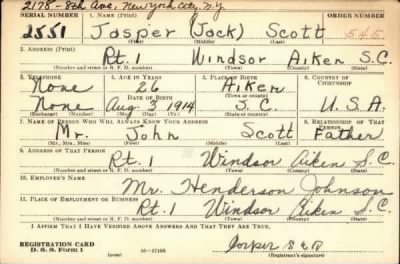 2178 - 8th Ave., New York City, N.Y.
SERIAL NUMBER 1. NAME (Print) ORDER NUMBER
2551 Jasper (Jack) Scott 545
(First) (Middle) (Last)
2. ADDRESS (Print)
Rt. 1 Windsor Aiken S.C.
(Number and street or R. F. D. number) (Town) (County) (State)
3. TELEPHONE 4. AGE IN YEARS 5. PLACE OF BIRTH 6. COUNTRY OF CITIZENSHIP
None 26 Aiken
DATE OF BIRTH (Town or county)
None Aug 3 1914 S.C. U.S.A
(Exchange) (Number) (Mo.) (Day) (Yr.) (State or country)
7. NAME OF PERSON WHO WILL ALWAYS KNOW YOUR ADDRESS 8. RELATIONSHIP OF THAT PERSON
Mr. John Scott Father
(Mr., Mrs., Miss) (First) (Middle) (Last)
9. ADDRESS OF THAT PERSON
Rt. 1 Windsor Aiken S.C.
(Number and street or R. F. D. number) (Town) (County) (State)
10. EMPLOYER'S NAME
Mr. Henderson Johnson
11. PLACE OF EMPLOYMENT OR BUSINESS
Rt. 1 Windsor Aiken S.C.
(Number and street or R. F. D. number) (Town) (County) (State)
I AFFIRM THAT I HAVE VERIFIED ABOVE ANSWERS AND THAT THEY ARE TRUE.
REGISTRATION CARD
D. S. S. Form 1 (over) 16-17105
(Registrant's signature)